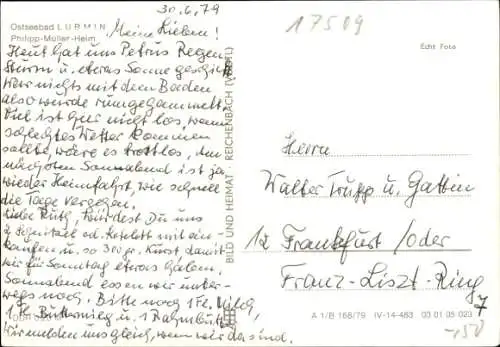 30.6.79
17509
Ostseebad LUBMIN
Philipp-Müller-Heim
Meine Lieben!
Heut hat uns Petrus Regen
Sturm u. etwas Sonne geschickt
war nichts mit dem Baden
also wurde rumgegammelt,
Viel ist hier nicht los, wenn
schlechtes Wetter kommen
sollte, wäre es trostlos, Am
nächsten Sonnabend ist ja
wieder Heimfahrt, wie schnell
die Tage vergehen.
Liebe Ruth, würdest Du uns
2 Schnitzel od. Kotelett mit ein-
kaufen u. so 300 gr. Wurst damit
wir für Sonntag etwas haben.
Sonnabend essen wir unter-
wegs noch. Bitte noch 1 Fl. Milch,
1 Fl. Buttermilch u. 1 Rahmbutter
Wir melden uns gleich, wenn wir da sind.
BILD UND HEIMAT · REICHENBACH (VOGTL)
Echt Foto
Herrn
Walter Trupp u. Gattin
12 Frankfurt/Oder
Franz-Liszt-Ring
7
A 1/B 168/79 IV-14-483 03 01 05 023
-150